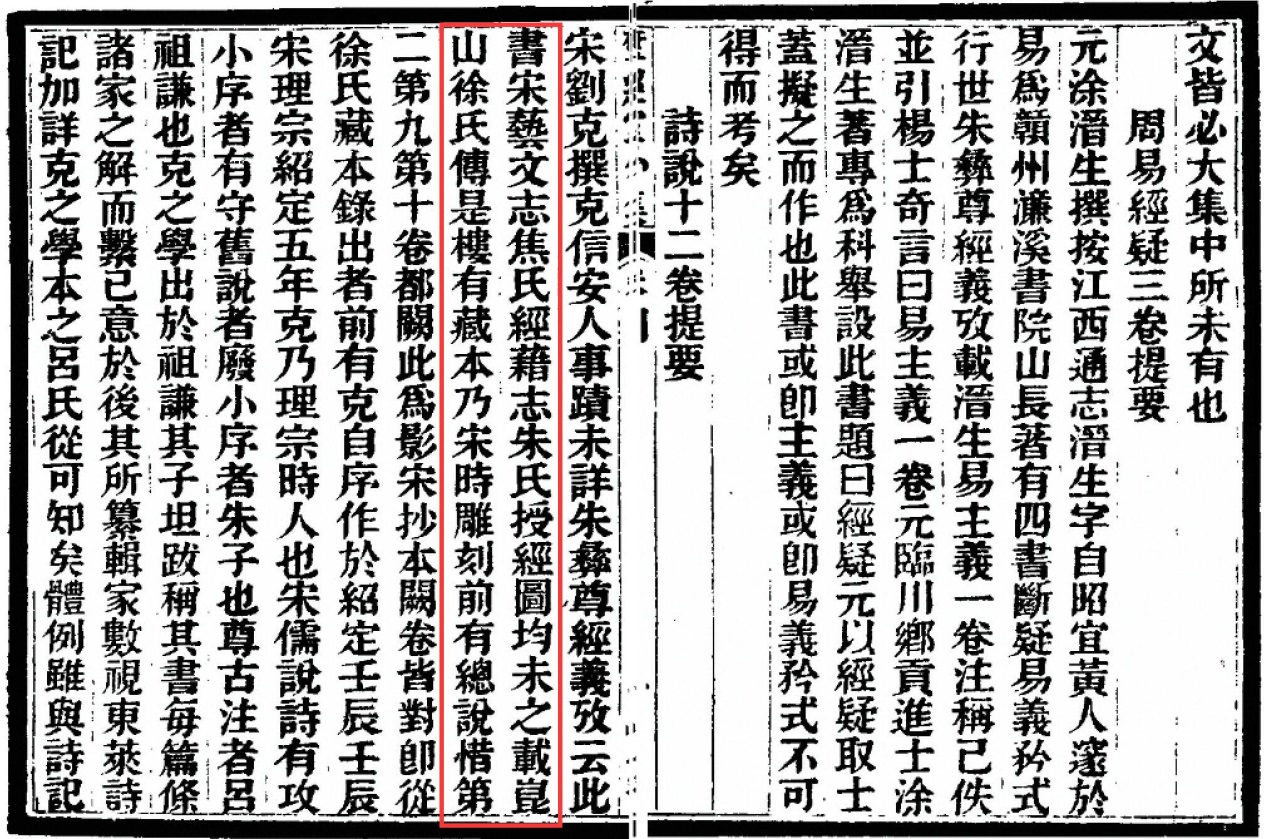 文皆必大集中所未有也
周易經疑三卷提要
元涂溍生撰按江西通志溍生字自昭宜黃人邃於
易爲贛州濂溪書院山長著有四書斷疑易義矜式
行世朱彝尊經義攷載溍生易主義一卷注稱已佚
並引楊士奇言曰易主義一卷元臨川鄉貢進士涂
溍生著專爲科舉設此書題曰經疑元以經疑取士
蓋擬之而作也此書或卽主義或卽易義矜式不可
得而考矣
詩說十二卷提要
宋劉克撰克信安人事蹟未詳朱彝尊經義攷云此
書宋藝文志焦氏經藉志朱氏授經圖均未之載崑
山徐氏傳是樓有藏本乃宋時雕刻前有總說惜第
二第九第十卷都闕此爲影宋抄本闕卷皆對卽從
徐氏藏本錄出者前有克自序作於紹定壬辰壬辰
宋理宗紹定五年克乃理宗時人也宋儒說詩有攻
小序者有守舊說者廢小序者朱子也尊古注者呂
祖謙也克之學出於祖謙其子坦跋稱其書每篇條
諸家之解而繫己意於後其所纂輯家數視東萊詩
記加詳克之學本之呂氏從可知矣體例雖與詩記